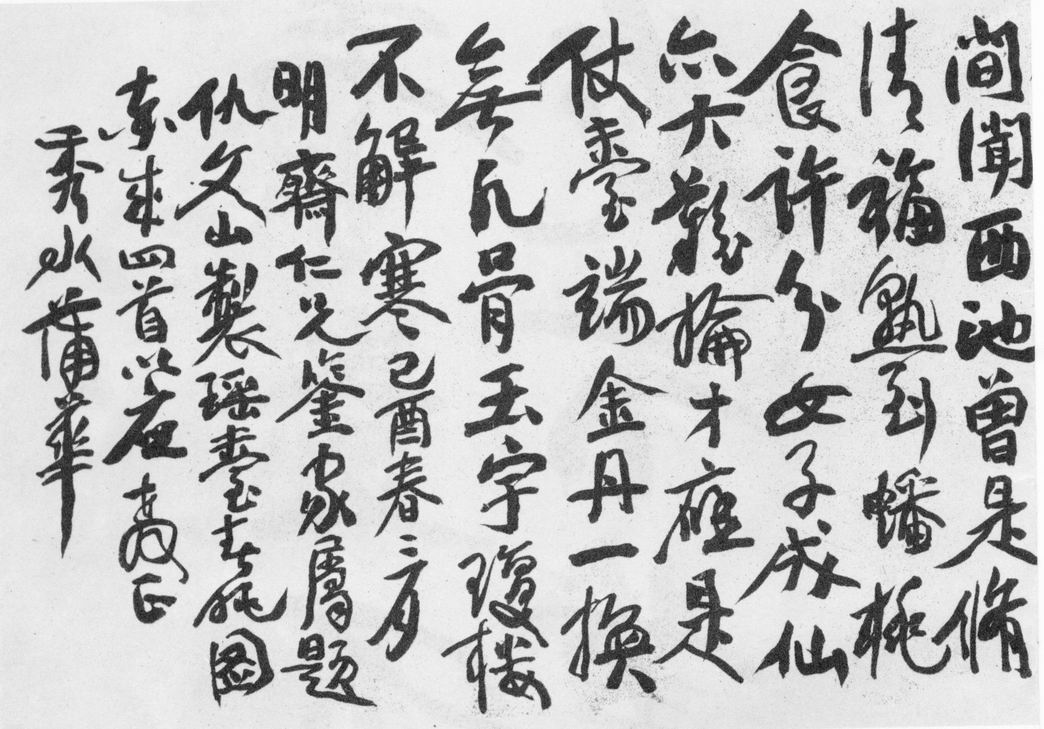 間聞西池曾是脩
清福熟到蟠桃
食許分女子成仙
亦大難掄才應是
仗臺端金丹一換
無凡骨玉宇瓊樓
不解寒己酉春三月
明齋仁兄鑒家屬題
仇文山製瑤臺春曉圖
率成四首以應教正
秀水蒲華